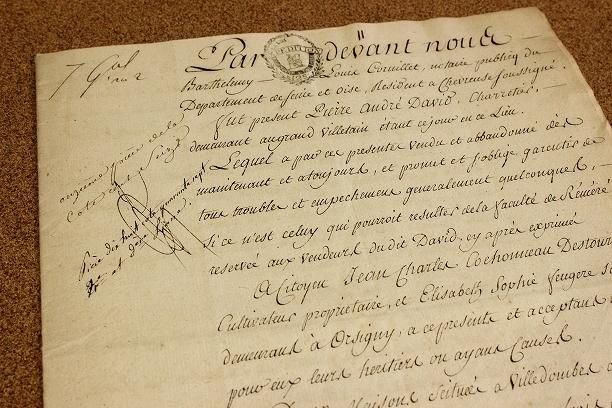 7 Gal
Par devant nous
Barthelemy Louis Cornillet, notaire publicq du
Departement de Seine et Oise, Resident a Chevreuse soussigné
fut present Pierre André David, Charretier,
demeurant au grand Villetain étant ce jour en ce Lieu.
Lequel a par ces presentes vendu et abbandonné dès
maintenant et atoujours, et promet et s'oblige garantir de
tous troubles et empechemens generalement quelconques,
Si ce n'est celuy qui pourroit resulter de la faculté de Réméré
reservée aux Vendeurs du dit David, cy après exprimé
A Citoyen Jean Charles Cochonneau Destour
Cultivateur proprietaire, et Elisabeth Sophie feugere S
demeurans à Orsigny, a ce presente et acceptans
pour eux leurs heritiers ou ayans Cause.
Maisons scituée a Villedombes
onzieme piece de la
Cote cent Seize
Piece dix huit
et